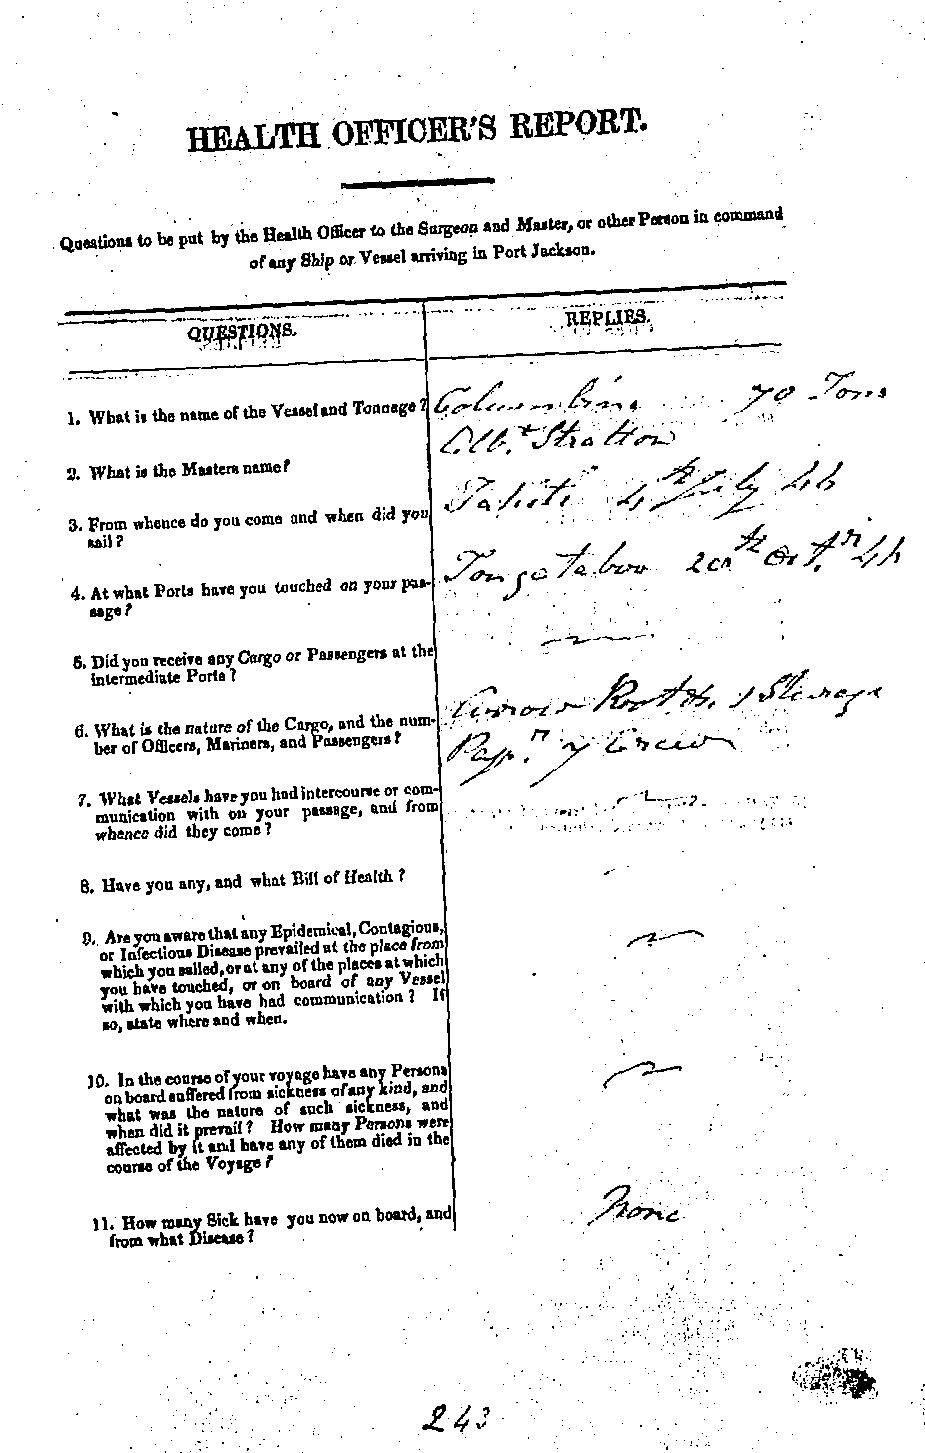 HEALTH OFFICER'S REPORT.
Questions to be put by the Health Officer to the Surgeon and Master, or other Person in command
of any Ship or Vessel arriving in Port Jackson.
QUESTIONS.
REPLIES.
1. What is the name of the Vessel and Tonnage?
Columbine 70 Tons
2. What is the Masters name?
Albt Stratton
3. From whence do you come and when did you
sail?
Tahiti 4th July 44
4. At what Ports have you touched on your pas-
sage?
Tongataboo 20th Octr 44
5. Did you receive any Cargo or Passengers at the
intermediate Ports?
6. What is the nature of the Cargo, and the num-
ber of Officers, Mariners, and Passengers?
Arrow Root &c. 1 Steerage
Passr 7 Crew
7. What Vessels have you had intercourse or com-
munication with on your passage, and from
whence did they come?
8. Have you any, and what Bill of Health?
9. Are you aware that any Epidemical, Contagious,
or Infectious Disease prevailed at the place from
which you sailed, or at any of the places at which
you have touched, or on board of any Vessel
with which you have had communication? If
so, state where and when.
10. In the course of your voyage have any Persons
on board suffered from sickness of any kind, and
what was the nature of such sickness, and
when did it prevail? How many Persons were
affected by it and have any of them died in the
course of the Voyage?
11. How many Sick have you now on board, and
from what Disease?
None
243